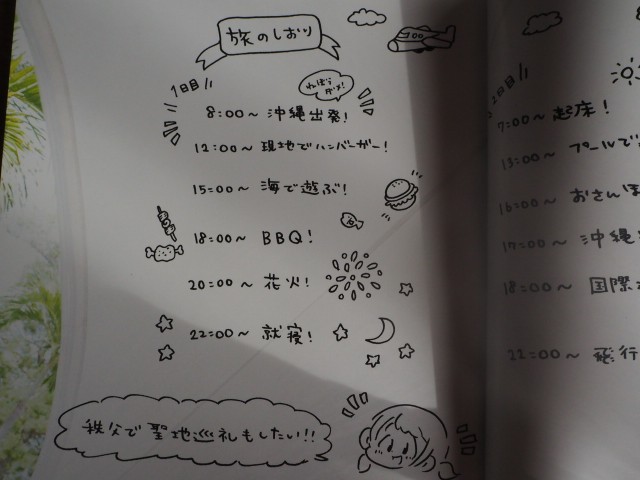 旅のしおり
1日目
ねぼうダメ!
8:00〜 沖縄出発!
12:00〜 現地でハンバーガー!
15:00〜 海で遊ぶ!
18:00〜 BBQ!
20:00〜 花火!
22:00〜 就寝!
秩父で聖地巡礼もしたい!!
2日目
7:00〜 起床!
15:00〜 プールで
16:00〜 おさんぽ
17:00〜 沖縄
18:00〜 国際
22:00〜 飛行